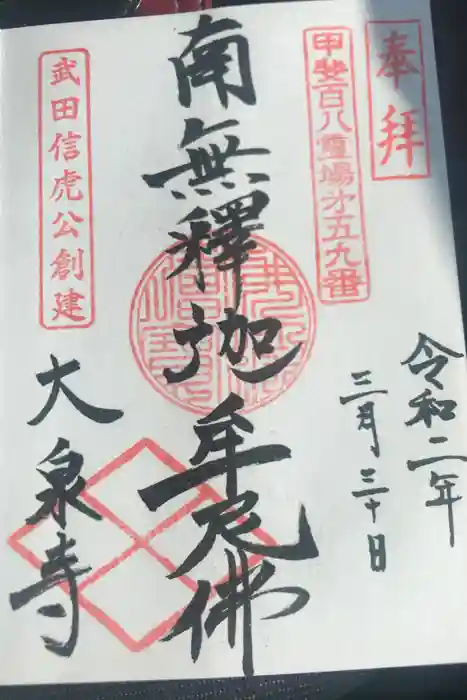 奉拝
令和二年
三月三十日
甲斐百八霊場㐧五九番
南無釋迦牟尼佛
武田信虎公創建
大泉寺